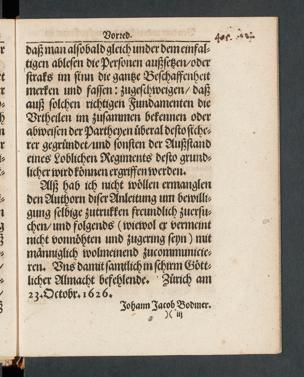 Vorred.
daß man alsobald gleich under dem einfal-
tigen ablesen die Personen außsetzen/oder
straks im sinn die gantze Beschaffenheit
merken und fassen: zugeschweigen/ daß
auß solchen richtigen Fundamenten die
Urtheilen im zusammen bekennen oder
abweisen der Partheyen überal desto siche-
rer gegründet/ und sonsten der Aufstand
eines Loblichen Regiments desto gründ-
licher wird können ergriffen werden.
Alß hab ich nicht wöllen ermanglen
den Authorn diser Anleitung um bewilli-
gung selbige zutrukken freundlich zuersu-
chen/ und folgends (wiewol er vermeint
nicht vonnöhten und zugering seyn) mit
männiglich wolmeinend zucommunicie-
ren. Uns damit samtlich in schirm Gött-
licher Almacht befehlende. Zürich am
23. Octobr. 1626.
Johann Jacob Bodmer.
)( iij